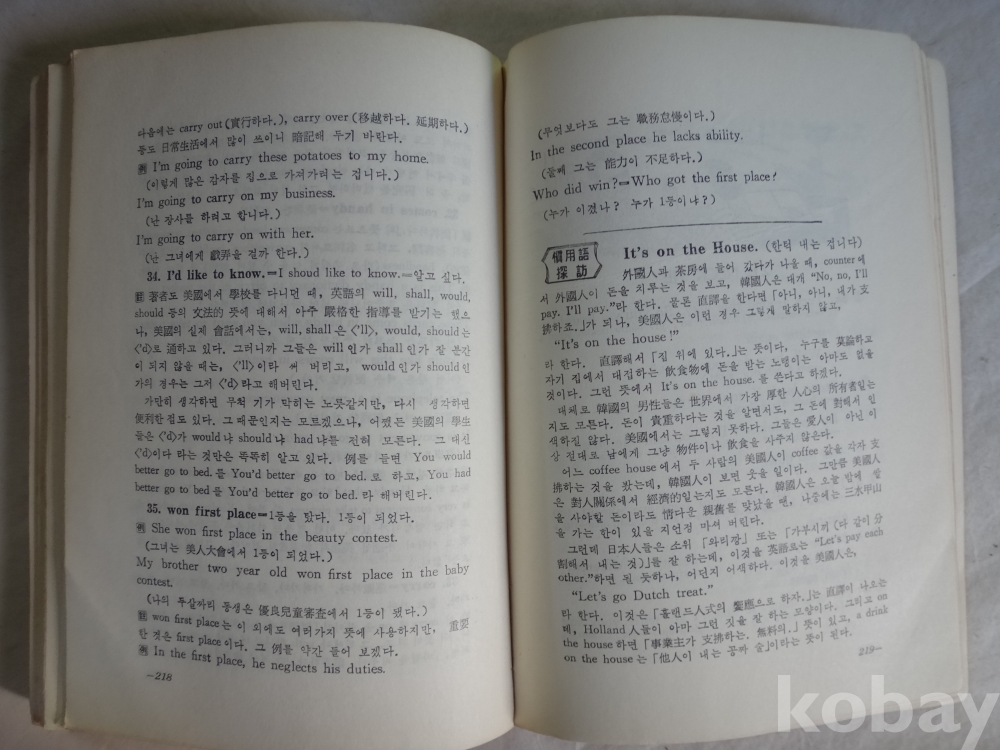 다음에는 carry out (實行하다.), carry over (移越하다. 延期하다.)
등도 日常生活에서 많이 쓰이니 暗記해 두기 바란다.
例 I'm going to carry these potatoes to my home.
(이렇게 많은 감자를 집으로 가져가려는 겁니다.)
I'm going to carry on my business.
(난 장사를 하려고 합니다.)
I'm going to carry on with her.
(난 그녀에게 戱弄을 걸까 한다.)
34. I'd like to know.=I shoud like to know.=알고 싶다.
註 著者도 美國에서 學校를 다니던 때, 英語의 will, shall, would,
should 등의 文法的 뜻에 대해서 아주 嚴格한 指導를 받기는 했으
나, 美國의 실제 會話에서는, will, shall 은 〈'll〉, would, should는
〈'd〉로 通하고 있다. 그러니까 그들은 will 인가 shall 인가 잘 분간
이 되지 않을 때는, 〈'll〉이라 써 버리고, would 인가 should 인
가의 경우는 그저 〈'd〉라고 해버린다.
가만히 생각하면 무척 기가 막히는 노릇같지만, 다시 생각하면
便利한 점도 있다. 그 때문인지는 모르겠으나, 어쨌든 美國의 學生
들은 〈'd〉가 would냐 should냐 had냐를 전혀 모른다. 그 대신
〈'd〉이다 라는 것만은 똑똑히 알고 있다. 例를 들면 You would
better go to bed.를 You'd better go to bed.로 하고, You had
better go to bed 를 You'd better go to bed. 라 해버린다.
35. won first place=1등을 탔다. 1등이 되었다.
例 She won first place in the beauty contest.
(그녀는 美人大會에서 1등이 되었다.)
My brother two year old won first place in the baby
contest.
(나의 두살짜리 동생은 優良兒童審査에서 1등이 됐다.)
註 won first place는 이 외에도 여러가지 뜻에 사용하지만, 重要
한 것은 first place이다. 그 例를 약간 들어 보겠다.
例 In the first place, he neglects his duties.
—218
(무엇보다도 그는 職務怠慢이다.)
In the second place he lacks ability.
(둘째 그는 能力이 不足하다.)
Who did win?=Who got the first place?
(누가 이겼나? 누가 1등이냐?)
慣用語
探訪
It's on the House. (한턱 내는 겁니다)
外國人과 茶房에 들어 갔다가 나올 때, counter에
서 外國人이 돈을 치루는 것을 보고, 韓國人은 대개 "No, no, I'll
pay. I'll pay."라 한다. 물론 直譯을 한다면 「아니, 아니, 내가 支
拂하죠.」가 되나, 美國人은 이런 경우 그렇게 말하지 않고,
"It's on the house!"
라 한다. 直譯해서 「집 위에 있다.」는 뜻이다, 누구를 莫論하고
자기 집에서 대접하는 飮食物에 돈을 받는 노랭이는 아마도 없을
것이다. 그런 뜻에서 It's on the house.를 쓴다고 하겠다.
대체로 韓國의 男性들은 世界에서 가장 厚한 人心의 所有者일는
지도 모른다. 돈이 貴重하다는 것을 알면서도, 그 돈에 對해서 인
색하질 않다. 美國에서는 그렇지 못하다. 그들은 愛人이 아닌 이
상 절대로 남에게 그냥 物件이나 飮食을 사주지 않는다.
어느 coffee house에서 두 사람의 美國人이 coffee 값을 각자 支
拂하는 것을 봤는데, 韓國人이 보면 웃을 일이다. 그만큼 美國人
은 對人關係에서 經濟的일는지도 모른다. 韓國人은 오늘 밤에 쌀
을 사야할 돈이라도 情다운 親舊를 맞났을 땐, 나중에는 三水甲山
을 가는 한이 있을 지언정 마셔 버린다.
그런데 日本人들은 소위 「와리깡」 또는 「가부시끼 (다 같이 分
割해서 내는 것)」를 잘 하는데, 이것을 英語로는 "Let's pay each
other."하면 될 듯하나, 어딘지 어색하다. 이것을 美國人은,
"Let's go Dutch treat."
라 한다. 이것은 「홀랜드人式의 饗應으로 하자.」는 直譯이 나오는
데, Holland 人들이 아마 그런 것을 잘 하는 모양이다. 그리고 on
the house 하면 「事業主가 支拂하는. 無料의.」 뜻이 있고, a drink
on the house 는 「他人이 내는 공짜 술」이라는 뜻이 된다.
219—
kobay